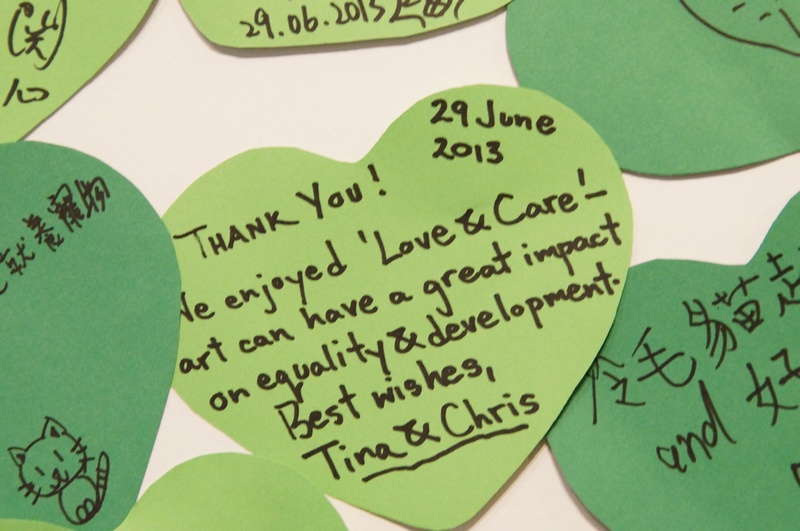 29.06.2013
心
就養寵物
29 June
2013
THANK YOU!
We enjoyed 'Love & Care'–
art can have a great impact
on equality & development.
Best wishes,
Tina & Chris
毛貓
and 好